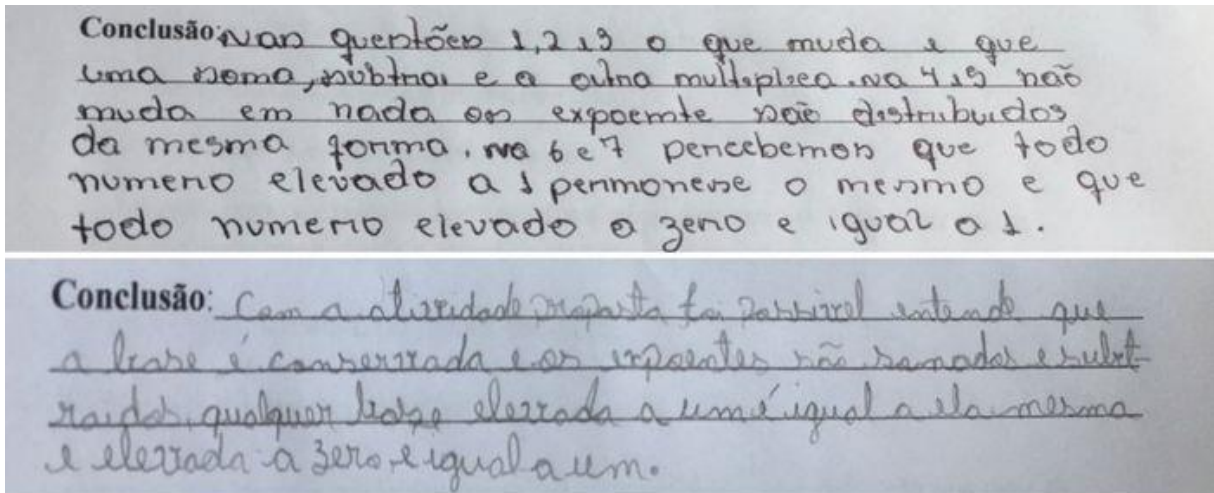 Conclusão: Nas questões 1,2 e 3 o que muda e que
uma soma, subtrai e a outra multiplica. na 4 e 5 não
muda em nada os expoemte são distribuidos
da mesma forma. na 6 e 7 percebemos que todo
numero elevado a 1 permonese o mesmo e que
todo numero elevado a zero e igual a 1.
Conclusão: Com a atividade proposta foi possivel entende que
a base é conservada e os expoentes são somados e subt-
raidos, qualquer base elevada a um é igual a ela mesma
e elevada a zero, e igual a um.